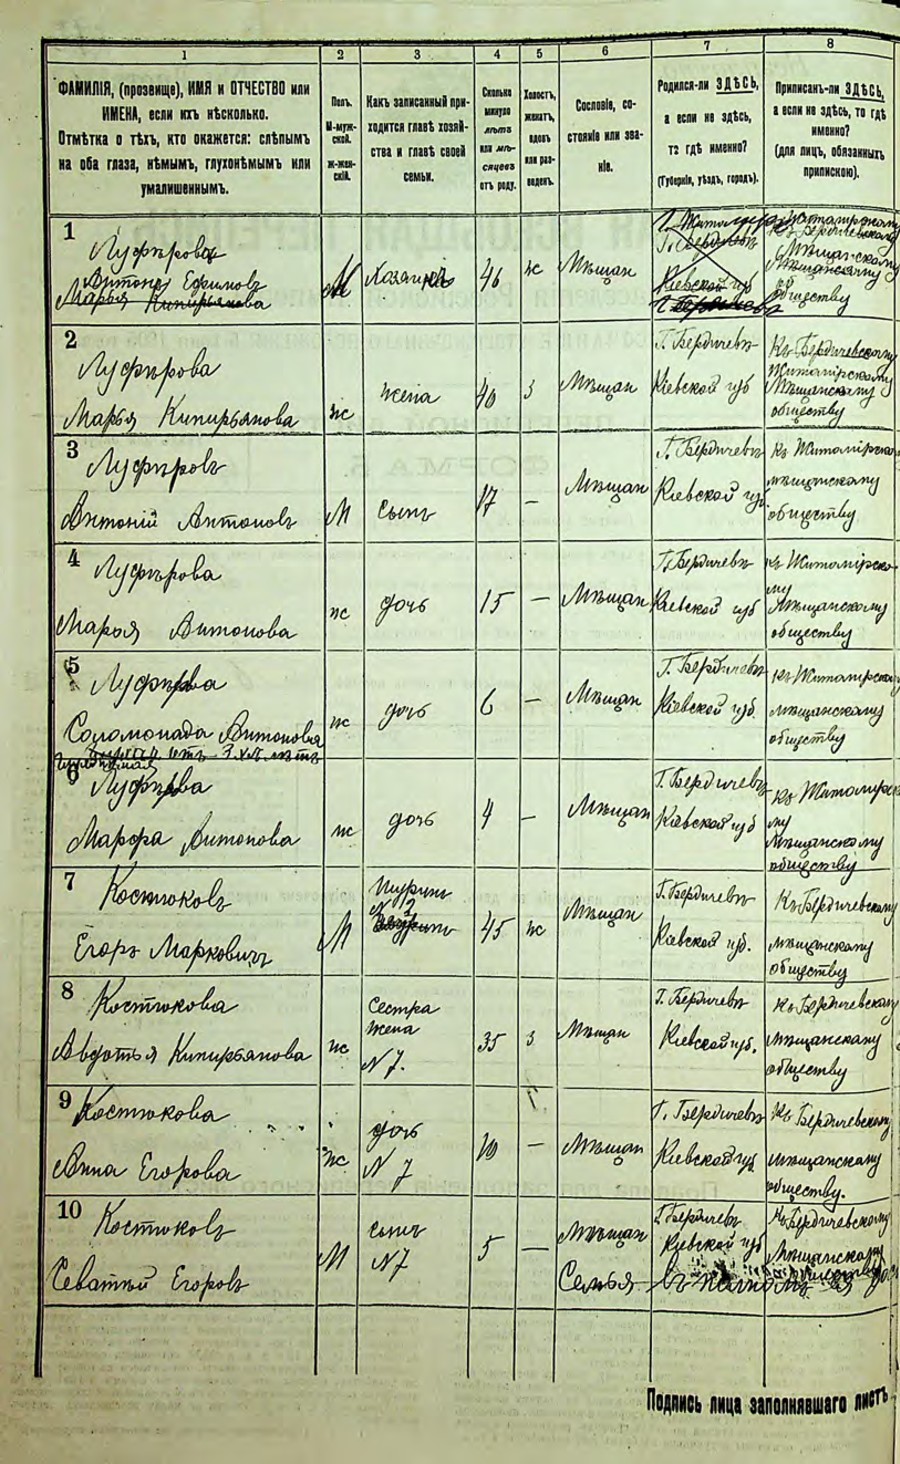 1 2 3 4 5 6 7 8
ФАМИЛІЯ, (прозвище), ИМЯ и ОТЧЕСТВО или
ИМЕНА, если ихъ нѣсколько.
Отмѣтка о тѣхъ, кто окажется: слѣпымъ
на оба глаза, нѣмымъ, глухонѣмымъ или
умалишеннымъ.
Полъ.
М-муж-
ской.
ж-жен-
скій.
Какъ записанный при-
ходится главѣ хозяй-
ства и главѣ своей
семьи.
Сколько
минуло
лѣтъ
или мѣ-
сяцевъ
отъ роду.
Холостъ,
женатъ,
вдовъ
или раз-
веденъ.
Сословіе, со-
стояніе или зва-
ніе.
Родился-ли ЗДѢСЬ,
а если не здѣсь,
то гдѣ именно?
(Губернія, уѣздъ, городъ).
Приписанъ-ли ЗДѢСЬ,
а если не здѣсь, то гдѣ
именно?
(для лицъ, обязанныхъ
припискою).
1
Луферова
Антонъ Ефимовъ
Марья Киприянова
М
Хозяинъ
46
ж
Мѣщан
Кіевской губ
Мѣщанскому
обществу
2
Луферова
Марья Киприянова
ж
жена
40
з
Мѣщан
Г. Бердичевъ
Кіевской губ
Къ Бердичевскому
Житомірскому
Мѣщанскому
обществу
3
Луферовъ
Антоній Антоновъ
М
сынъ
17
—
Мѣщан
Г. Бердичевъ
Кіевской губ.
Къ Житомірско
мѣщанскому
обществу
4
Луферова
Марья Антонова
ж
дочь
15
—
Мѣщан
Г. Бердичевъ
Кіевской губ
Къ Житомірско-
му
Мѣщанскому
обществу
5
Луферова
Соломонада Антонова
ж
дочь
6
—
Мѣщан
Г. Бердичевъ
Кіевской губ.
Къ Житомірско
мѣщанскому
обществу
6
Луферова
Марфа Антонова
ж
дочь
4
—
Мѣщан
Г. Бердичевъ
Кіевской губ
Къ Житомірск
му
Мѣщанскому
обществу
7
Костюковъ
Егоръ Марковичъ
М
Шуринъ
N 2
45
ж
Мѣщан
Г. Бердичевъ
Кіевской губ.
Къ Бердичевскому
мѣщанскому
обществу
8
Костюкова
Авдотья Киприянова
ж
Сестра
жена
N 7.
35
з
Мѣщан
Г. Бердичевъ
Кіевской губ.
Къ Бердичевскому
мѣщанскому
обществу
9
Костюкова
Анна Егорова
ж
дочь
N 7
10
—
Мѣщан
Г. Бердичевъ
Кіевской губ
Къ Бердичевскому
мѣщанскому
обществу.
10
Костюковъ
Егоровъ
М
сынъ
N 7
5
—
Мѣщан
Г. Бердичевъ
Кіевской губ
Къ Бердичевскому
Мѣщанскому
Семья
Подпись лица заполнявшаго листъ